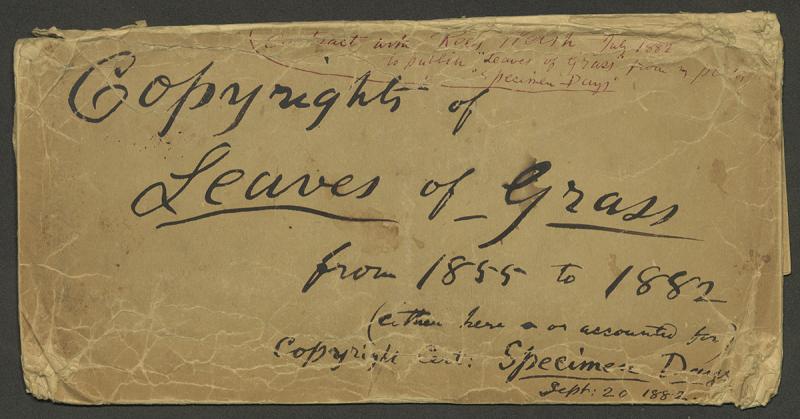 Contract with Rees Welsh July 1882
to publish "Leaves of Grass" from my plates
" "Specimen Days"
Copyrights of
Leaves of Grass
from 1855 to 1882
(either here or accounted for)
Copyright Cert: Specimen Days
Sept: 20 1882.